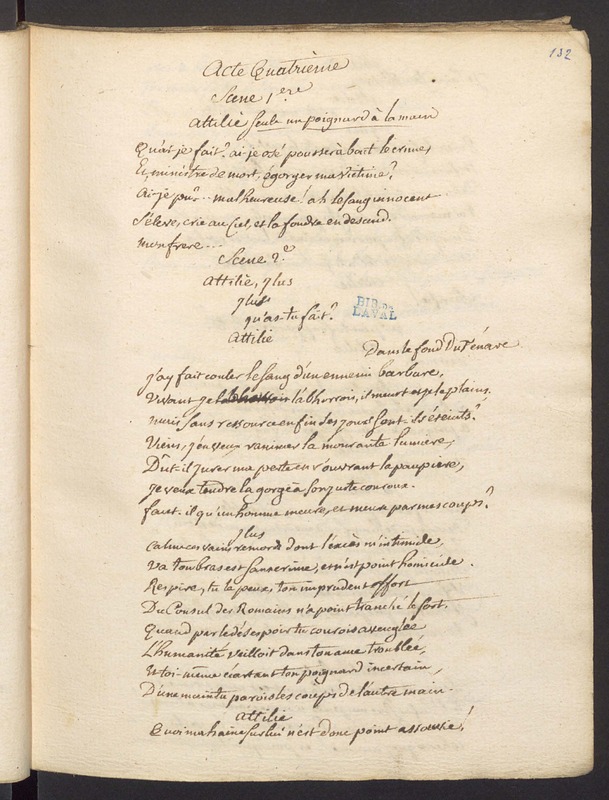 132
Acte Quatrième
Scene 1.ere
Attilie seule un poignard à la main
Qu'ai-je fait? ai-je osé pousser à bout le crime,
Et, ministre de mort, égorger ma victime?
Ai-je pû... malheureuse! ah le sang innocent
S'éleve, crie au Ciel, et la foudre en descend.
mon frere...
Scene 2.e
Attilie, Ilus
Ilus
qu'as-tu fait?
BIB. DE LAVAL
Attilie
Dans le fond du Ténare
J'ay fait couler le sang d'un ennemi barbare,
Vivant je l'abhorrois, il meurt et je le plains.
mais sans ressource enfin ses jours sont-ils éteints?
Viens, j'en veux ranimer la mourante lumiere,
Dût-il jurer ma perte en r'ouvrant la paupiere,
Je veux tendre la gorge à son juste couroux.
faut-il qu'un homme meure, et meure par mes coups?
Ilus
Calme ces vains remords dont l'excès m'intimide,
Va ton bras est sans crime, et n'est point homicide.
Respire, tu le peux, ton imprudent effort
Du Consul des Romains n'a point tranché le sort.
Quand par le désespoir tu courois aveuglée
L'humanité veilloit dans ton ame troublée,
Et toi-même écartant ton poignard incertain,
D'une main tu parois les coups de l'autre main.
Attilie
Quoi ma haine sur lui n'est donc point assouvie!